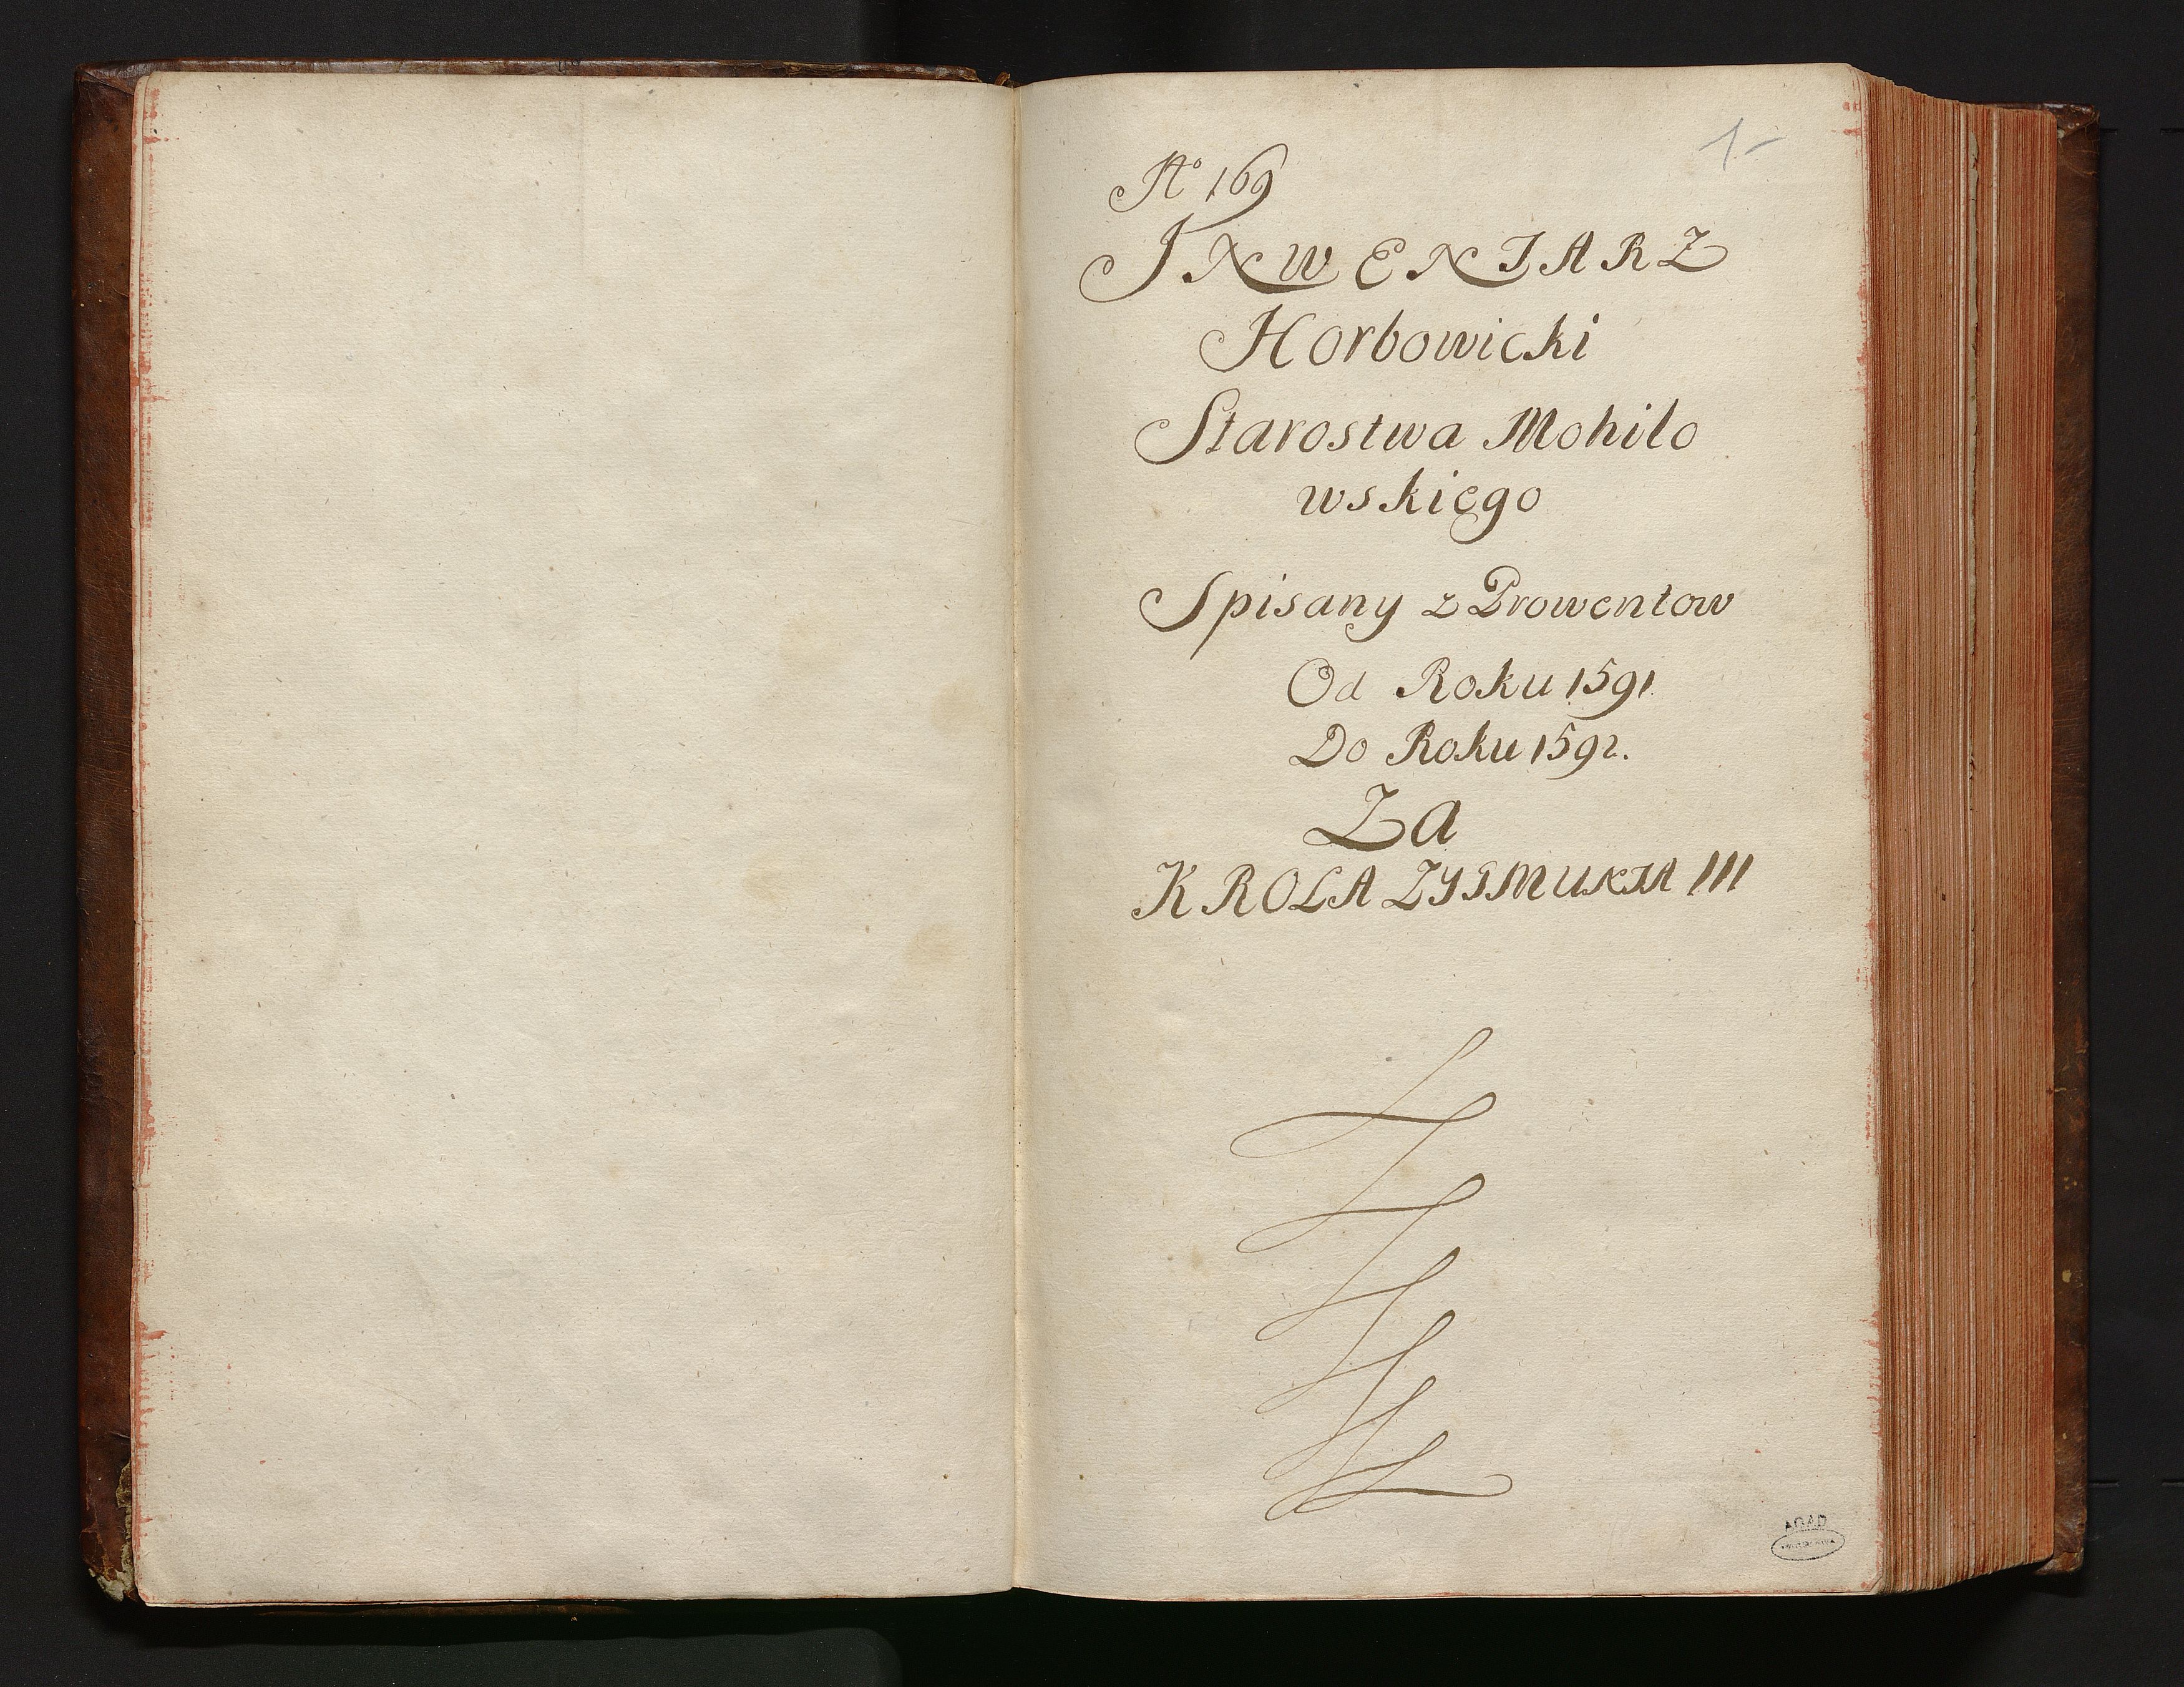 1-
No 169
INWENTARZ
Horbowicki
Starostwa Mohilo
wskiego
Spisany z Prowentow
Od Roku 1591
Do Roku 1592.
Za
KROLA ZYGMUNTA III
AGAD